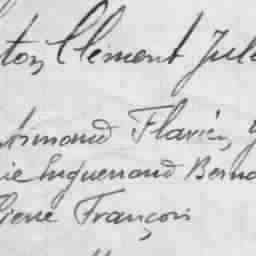 ton, Clément Jule
Armand Flavien, J
ie Huguenand Berna
Pierre François